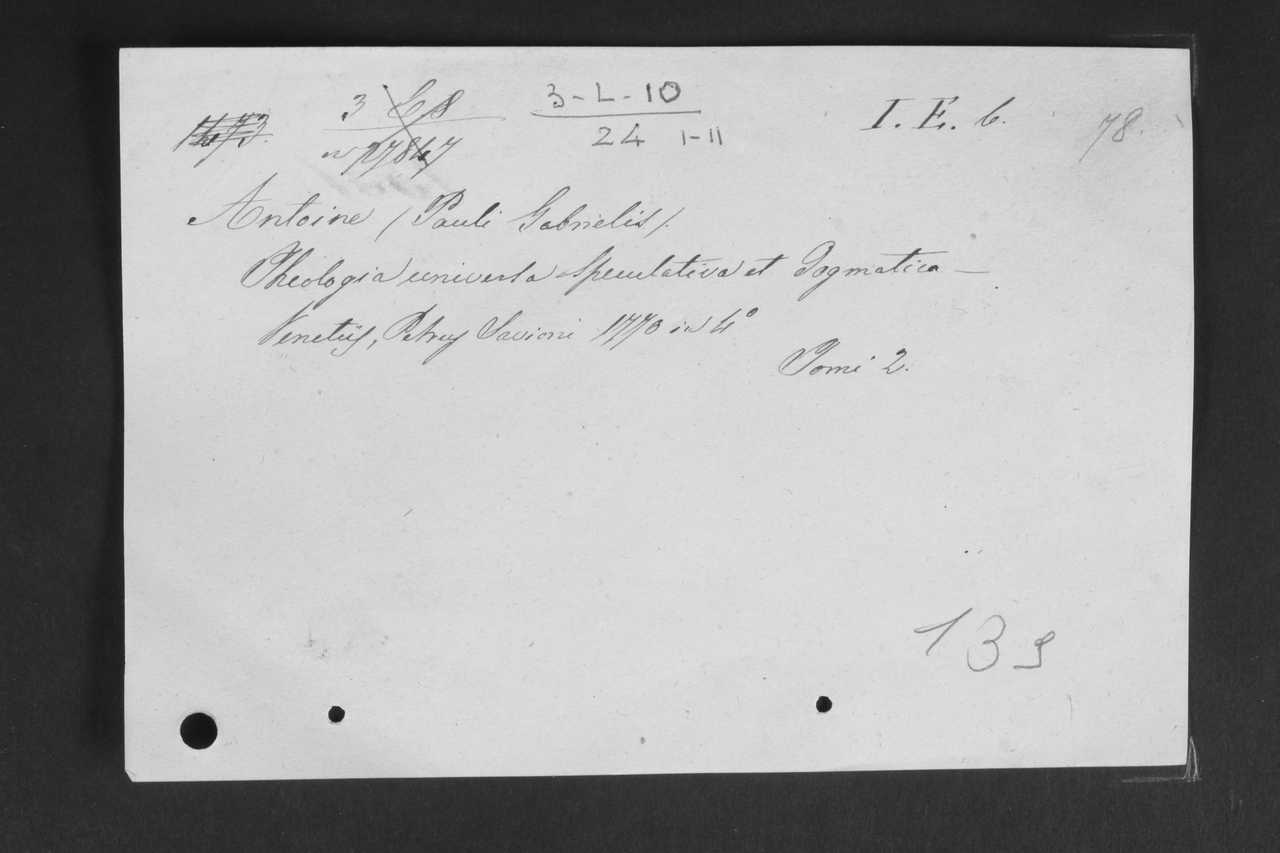 3-L-10 I. E. 6. 78.
24 I-II
Antoine / Pauli Gabrielis /.
Theologia universa speculativa et Dogmatica —
Venetiis, Petrus Savioni 1770 in 4º
Tomi 2.
139